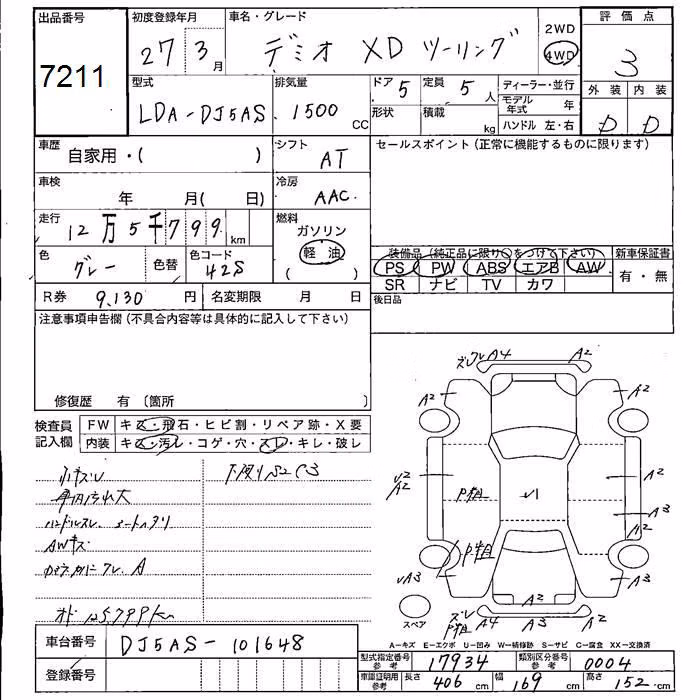 出品番号 初度登録年月 車名・グレード 2WD 評価点
7211 27 3月 デミオ XD ツーリング 4WD 3
型式 排気量 ドア 5 定員 5人 ディーラー・並行 外装 内装
LDA-DJ5AS 1500 CC 形状 積載 kg モデル年式 年 D D
ハンドル 左・右
車歴 自家用・( ) シフト AT セールスポイント (正常に機能するものに限ります)
車検 年 月( 日) 冷房 AAC
走行 12万5千799km 燃料 ガソリン
軽油
( )
色 グレー 色替 色コード 42S
装備品 (純正品に限り○をつけて下さい) 新車保証書
PS PW ABS エアB AW 有・無
SR ナビ TV カワ
R券 9,130 円 名変期限 月 日 後日品
注意事項申告欄 (不具合内容等は具体的に記入して下さい)
修復歴 有 〔箇所 〕
検査員記入欄 FW キズ・飛石・ヒビ割・リペア跡・X要
内装 キズ・汚レ・コゲ・穴・スレ・キレ・破レ
小キズU 下廻りS2C3
車内汚れ大
ハンドルスレ、シートヘタリ
AWキズ
A
オド 125,799km
ズレ A4 A2
A2 A2
U2 A2 A2
P粗 A3
A2
P粗
UA3 A3
A2
スペア ズレ P粗 A4 A3 A2
A−キズ E−エクボ U−凹み W−補修跡 S−サビ C−腐食 XX−交換済
車台番号 DJ5AS-101648
型式指定番号 参考 17934 類別区分番号 参考 0004
登録番号
車庫証明用 参考 長さ 406 cm 幅 169 cm 高さ 152 cm